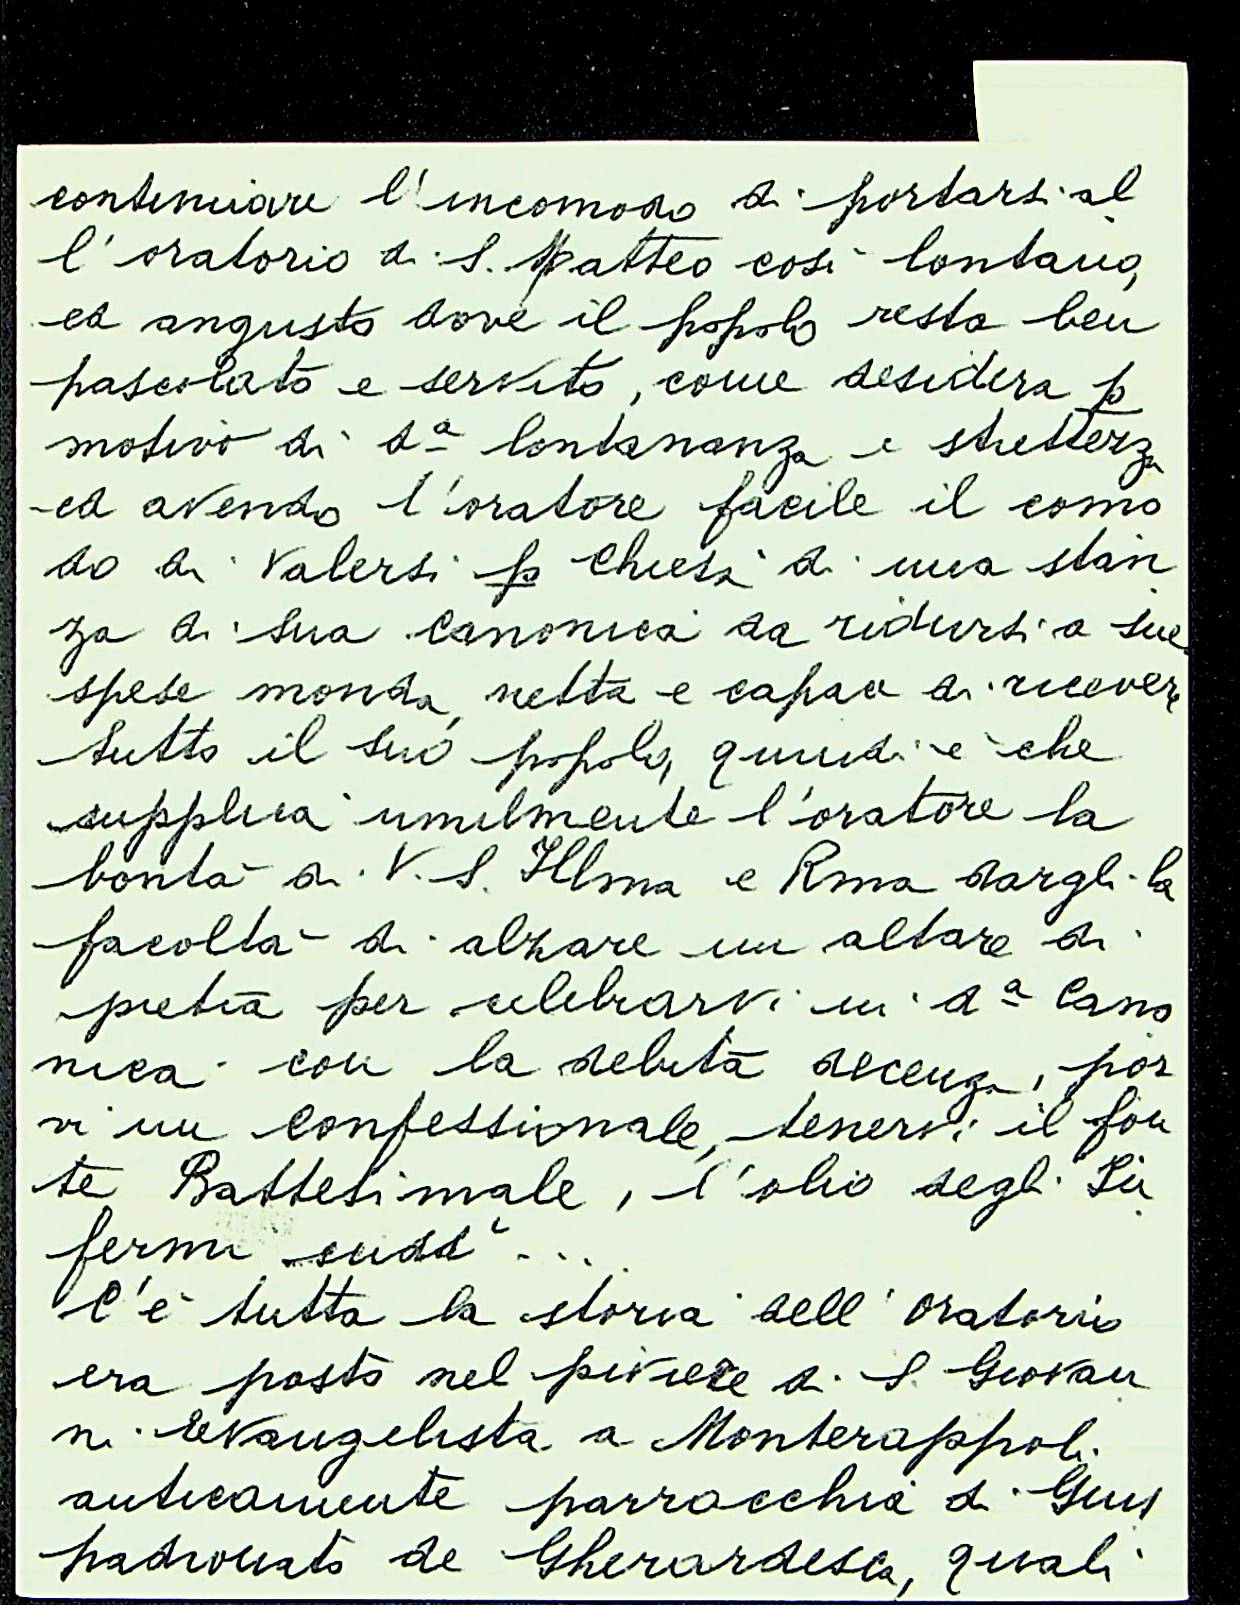 continuare l'incomodo di portarsi al
l'oratorio di S. Matteo così lontano,
ed angusto dove il popolo resta ben
pascolato e servito, come desidera p
motivo di dª lontananza e strettezza
ed avendo l'oratore facile il como
do di valersi p Chiesa di una stan
za di sua canonica da ridursi a sue
spese monda, netta e capace di ricevere
tutto il suo popolo, quindi è che
supplica umilmente l'oratore la
bontà di V. S. Illma e Rma dargli la
facoltà di alzare un altare di
pietra per celebrarvi in dª Cano
nica con la debita decenza, por
vi un confessionale, tenervi il fon
te Battesimale, l'olio degli In
fermi ...
C'è tutta la storia dell'Oratorio
era posto nel piviere di S. Giovan
ni Evangelista a Monterappoli
anticamente parrocchia di Gius
padronato de Gherardesca, quali